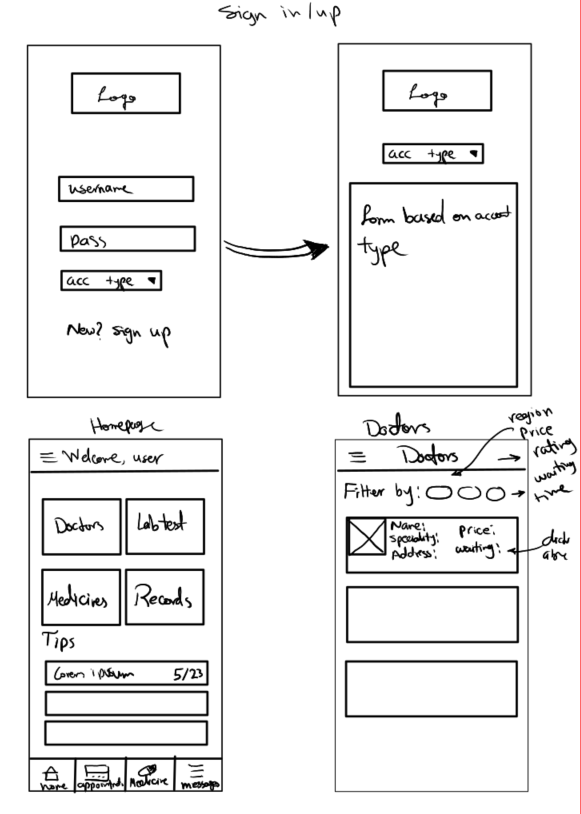 Sign in/up
Logo
username
pass
acc type
New? Sign up
Logo
acc type
Form based on account
type
Homepage
Welcome, user
Doctors
Lab test
Medicines
Records
Tips
Lorem ipsum 5/23
home
appointm.
Medicine
message
Doctors
region
price
rating
waiting
time
Doctors
Filter by:
Name:
Speciality:
Address:
Price:
waiting: